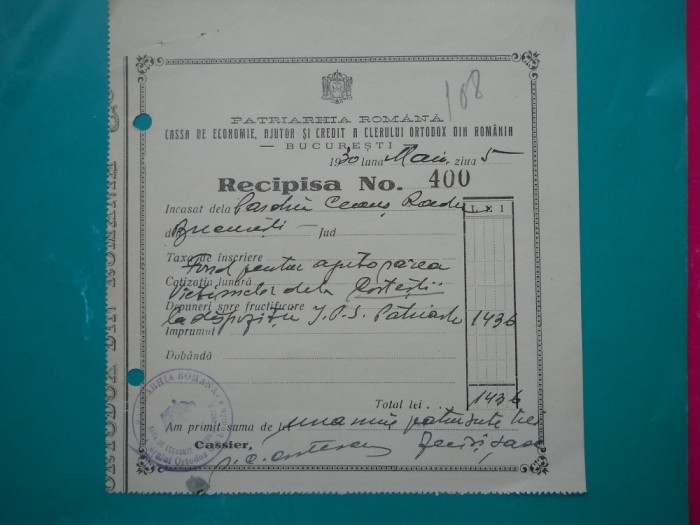 108
PATRIARHIA ROMÂNĂ
CASSA DE ECONOMIE, AJUTOR ȘI CREDIT A CLERULUI ORTODOX DIN ROMÂNIA
— BUCUREȘTI —
1930 luna Maiu ziua 5
Recipisa No. 400
Incasat dela Radu
LEI
d București — Jud
Taxa de înscriere
Fond pentru ajutorarea
Cotizația lunară
Victimelor dela Costești
Depuneri spre fructificare
la dispoziția I.P.S. Patriarh 1436
Imprumut
Dobândă
Total lei 1436
Am primit suma de lei una mie patru sute trei
zeci și șase
Cassier,